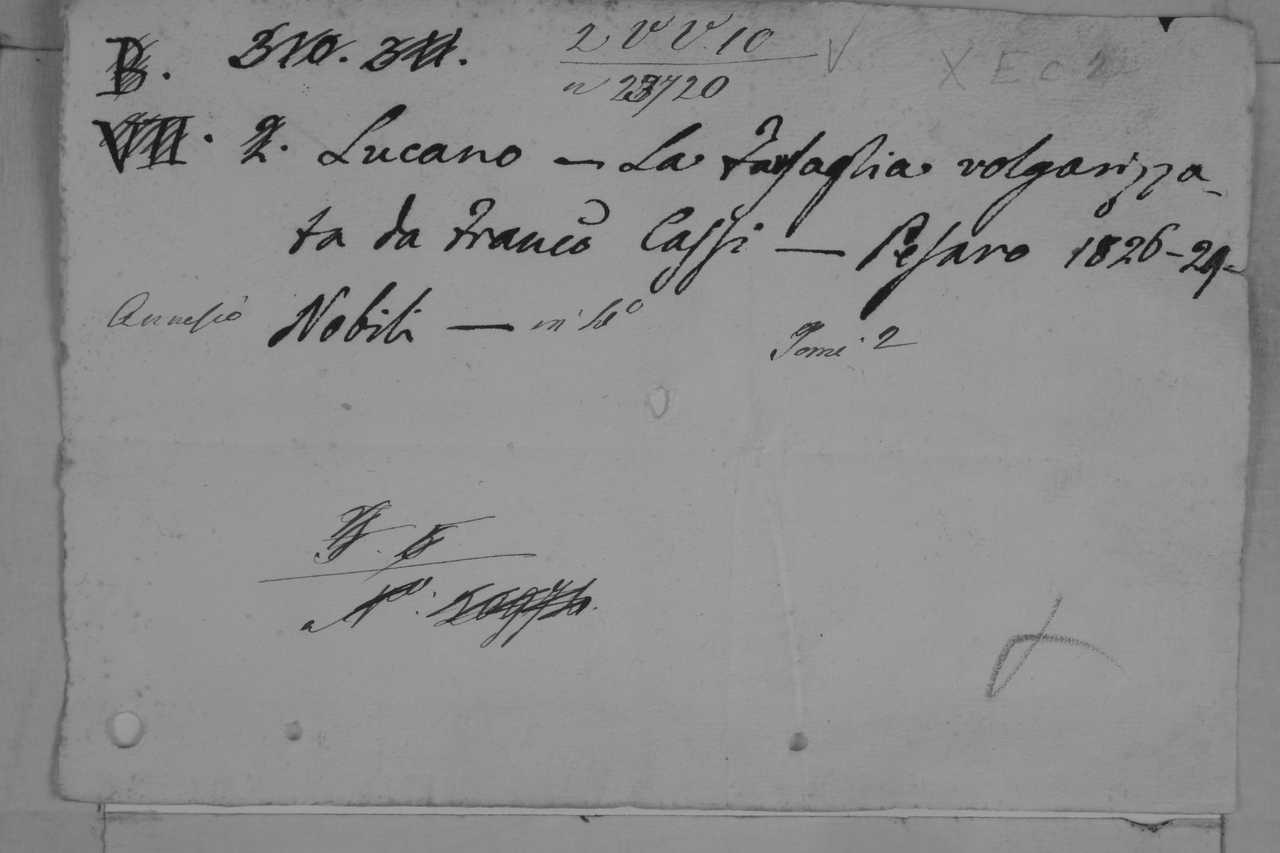 B. 310. 311. 2 V V. 10 V X E c 2
n 23720
VII. 2. Lucano — La Farsaglia volgarizza-
ta da Franco Cassi — Pesaro 1826-29-
Annesio Nobili — in 16º Tomi 2
Nº.